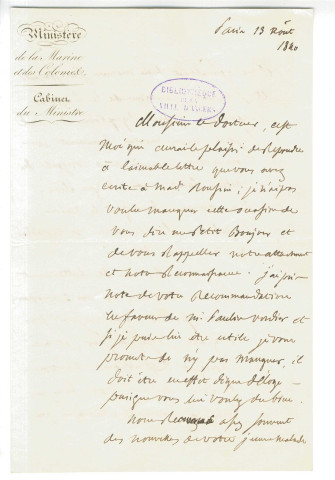 Ministère
de la Marine
et des Colonies.
Cabinet
du Ministre
Paris 13 août
1840
BIBLIOTHÈQUE
DE LA
VILLE D'
Monsieur le Docteur, c'est
moi qui aurai le plaisir de Répondre
à l'aimable lettre que vous avez
écrite à mad. ; je n'ai pas
voulu manquer cette occasion de
vous dire un Petit Bonjour et
de vous Rappeller notre attachement
et notre Reconnaissance. j'ai pris
note de votre Recommandation
en faveur de mr Paulin Verdier et
si je puis lui être utile je vous
promets de n'y pas manquer, il
doit être en effet digne d'éloge
puisque vous lui voulez du bien.
Nous Recevons assez souvent
des nouvelles de votre jeune malade